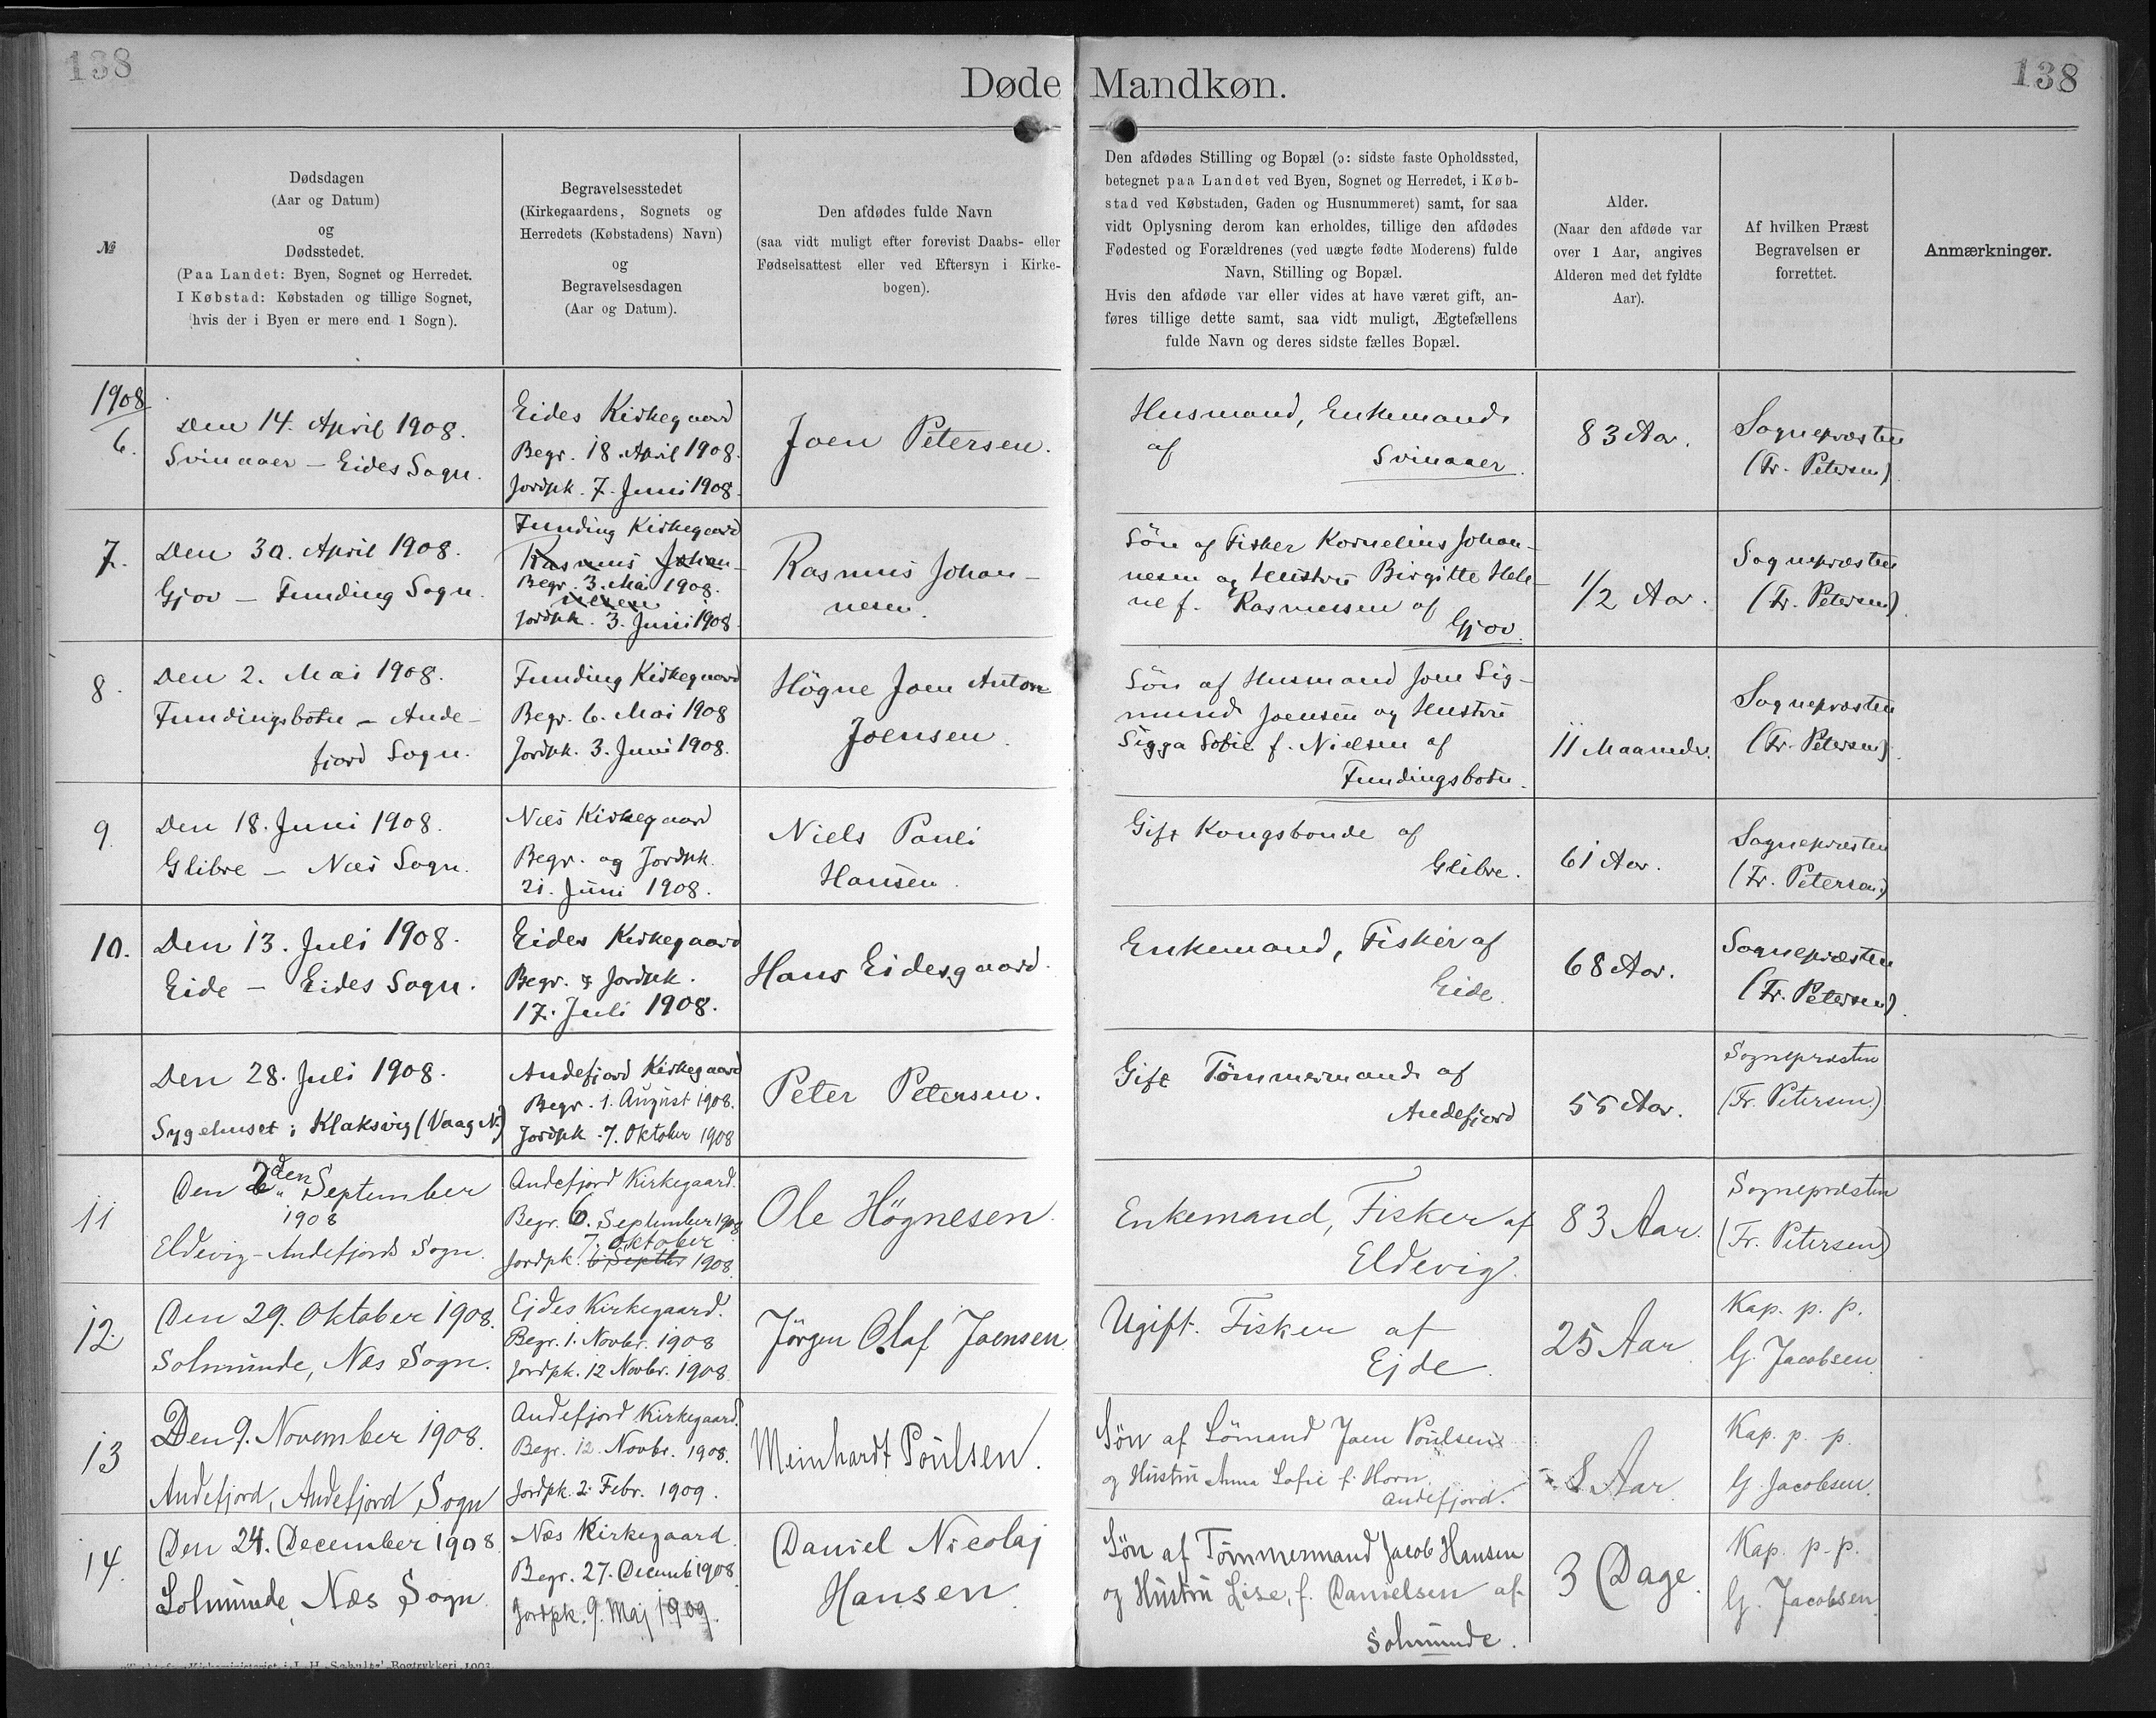 138
Døde Mandkøn.
138
№
Dødsdagen
(Aar og Datum)
og
Dødsstedet.
(Paa Landet: Byen, Sognet og Herredet.
I Købstad: Købstaden og tillige Sognet,
hvis der i Byen er mere end 1 Sogn).
Begravelsesstedet
(Kirkegaardens, Sognets og
Herredets (Købstadens) Navn)
og
Begravelsesdagen
(Aar og Datum).
Den afdødes fulde Navn
(saa vidt muligt efter forevist Daabs- eller
Fødselsattest eller ved Eftersyn i Kirke-
bogen).
Den afdødes Stilling og Bopæl (ɔ: sidste faste Opholdssted,
betegnet paa Landet ved Byen, Sognet og Herredet, i Køb-
stad ved Købstaden, Gaden og Husnummeret) samt, for saa
vidt Oplysning derom kan erholdes, tillige den afdødes
Fødested og Forældrenes (ved uægte fødte Moderens) fulde
Navn, Stilling og Bopæl.
Hvis den afdøde var eller vides at have været gift, an-
føres tillige dette samt, saa vidt muligt, Ægtefællens
fulde Navn og deres sidste fælles Bopæl.
Alder.
(Naar den afdøde var
over 1 Aar, angives
Alderen med det fyldte
Aar).
Af hvilken Præst
Begravelsen er
forrettet.
Anmærkninger.
1908
6.
Den 14. April 1908.
Svinaaer - Eides Sogn.
Eides Kirkegaard
Begr. 18. April 1908.
Jordpk. 7. Juni 1908.
Joen Petersen.
Husmand, Enkemand
af
Svinaaer.
83 Aar.
Sognepræsten
(Fr. Petersen)
7.
Den 30. April 1908.
Gjov - Funding Sogn.
Funding Kirkegaard
Rasmus Johan-
Begr. 3. Mai 1908.
nesen
Jordpk. 3. Juni 1908.
Rasmus Johan-
nesen.
Søn af Fisker Kornelius Johan-
nesen og Hustru Birgitte Hele-
ne f. Rasmussen af
Gjov.
1/2 Aar.
Sognepræsten
(Fr. Petersen).
8.
Den 2. Mai 1908.
Fundingsbotn - Ande-
fjord Sogn.
Funding Kirkegaard
Begr. 6. Mai 1908
Jordpk. 3. Juni 1908.
Högne Joen Anton
Joensen.
Søn af Husmand Joen Sig-
mund Joensen og Hustru
Sigga Sofie f. Nielsen af
Fundingsbotn.
11 Maaneder.
Sognepræsten
(Fr. Petersen).
9.
Den 18. Juni 1908.
Glibre - Næs Sogn.
Næs Kirkegaard
Begr. og Jordpk.
21. Juni 1908.
Niels Pauli
Hansen.
Gift Kongsbonde af
Glibre.
61 Aar.
Sognepræsten
(Fr. Petersen)
10.
Den 13. Juli 1908.
Eide - Eides Sogn.
Eides Kirkegaard
Begr. & Jordpk.
17. Juli 1908.
Hans Eidesgaard.
Enkemand, Fisker af
Eide.
68 Aar.
Sognepræsten
(Fr. Petersen).
Den 28. Juli 1908.
Sygehuset i Klaksvig (Vaag N.)
Andefjord Kirkegaard
Begr. 1. August 1908.
Jordpk. 7. Oktober 1908
Peter Petersen.
Gift Tömmermand af
Andefjord
55 Aar.
Sognepræsten
(Fr. Petersen.)
11
Den 2den September
1908
Eldevig - Andefjords Sogn.
Andefjord Kirkegaard.
Begr. 6. September 1908
7. Oktober
Jordpk. 6 Septbr 1908.
Ole Högnesen.
Enkemand, Fisker af
Eldevig.
83 Aar.
Sognepræsten
(Fr. Petersen)
12.
Den 29. Oktober 1908.
Solmunde, Næs Sogn.
Ejdes Kirkegaard.
Begr. 1. Novbr. 1908
Jordpk. 12 Novbr. 1908.
Jörgen Olaf Joensen.
Ugift. Fisker af
Ejde.
25 Aar
Kap. p. p.
G. Jacobsen.
13
Den 9. November 1908.
Andefjord, Andefjord Sogn
Andefjord Kirkegaard.
Begr. 12. Novbr. 1908.
Jordpk. 2. Febr. 1909.
Meinhardt Poulsen.
Søn af Sömand Joen Poulsen
og Hustru Anna Sofie f. Horn.
Andefjord.
Aar
Kap. p. p.
G. Jacobsen.
14.
Den 24. December 1908.
Solmunde, Næs Sogn.
Næs Kirkegaard.
Begr. 27. Decemb 1908.
Jordpk. 9. Maj 1909.
Daniel Nicolaj
Hansen.
Søn af Tömmermand Jacob Hansen
og Hustru Lise, f. Danielsen af
Solmunde.
3 Dage.
Kap. p. p.
G. Jacobsen